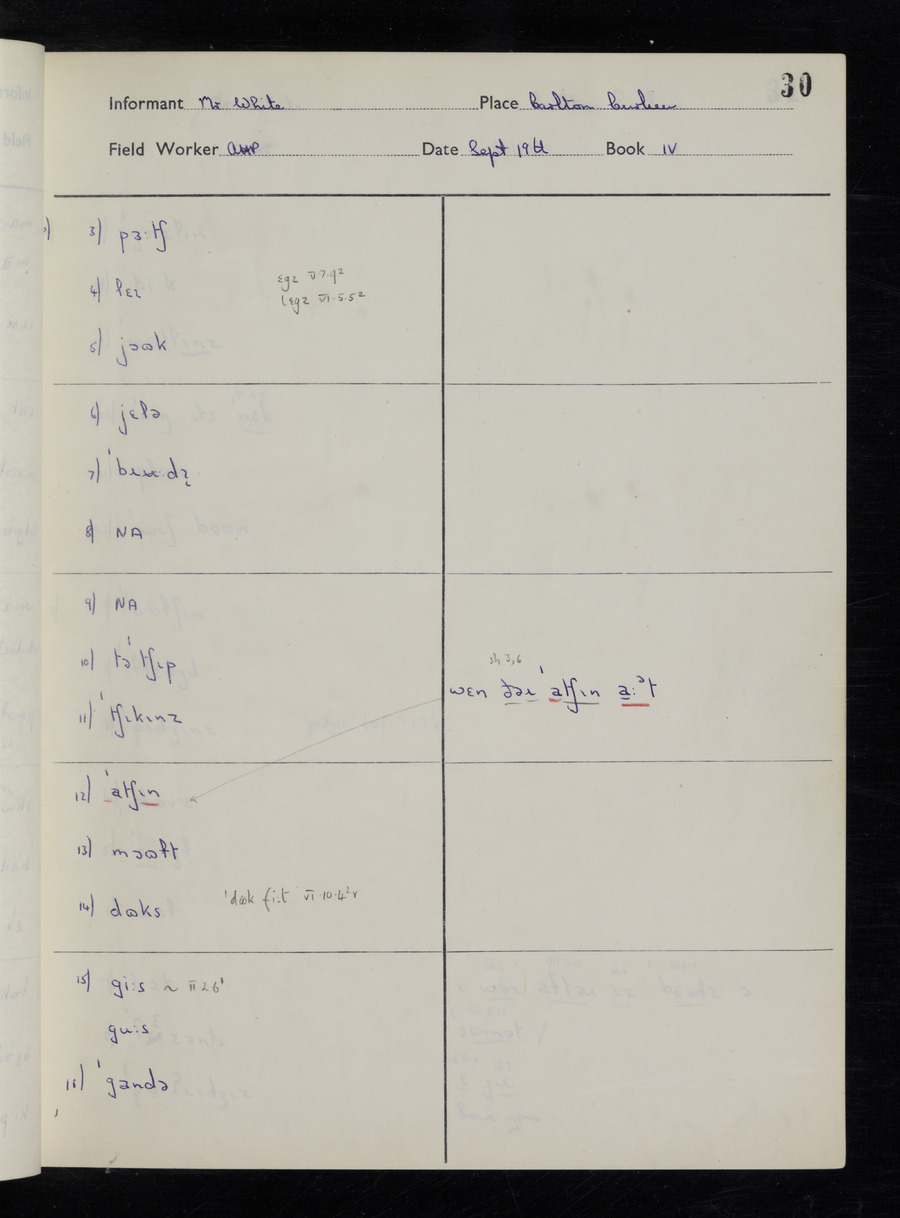 30
Informant Mr White Place Carlton Curlieu
Field Worker AHP Date Sept 19th Book IV
3) pɜ:tʃ
4) ɫɛɪ ɛgz V.7.9² 
lɛgz VI.5.5²
5) jɔɷk
6) jɛɫə
7)
8) NA
9) NA
10) tə ˈtʃɪp
11) ˈtʃɪkɪnz
sh 3,6
wɛn ðəɪ ˈatʃɪn a:ᵊt
12) ˈatʃɪn
13) mɔɷɫt
14) dɷks ˈdɷk fi:t VI.10.4²r
15) gi:s ~ II 2 6¹
gu:s
16) ˈgandə